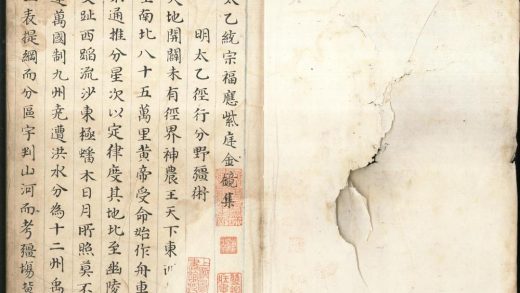 太乙統宗福應紫庭金鏡集
明太乙徑行分野疆術
天地開闢未有徑界神農王天下東
至南北八十五萬里黃帝受命始作舟車
通推分星次以定律度其地北至幽陵
交趾西蹈流沙東極蟠木日月所照莫不
建萬國制九州堯遭洪水分為十二州禹
表提綱而分區字判山河而考疆場